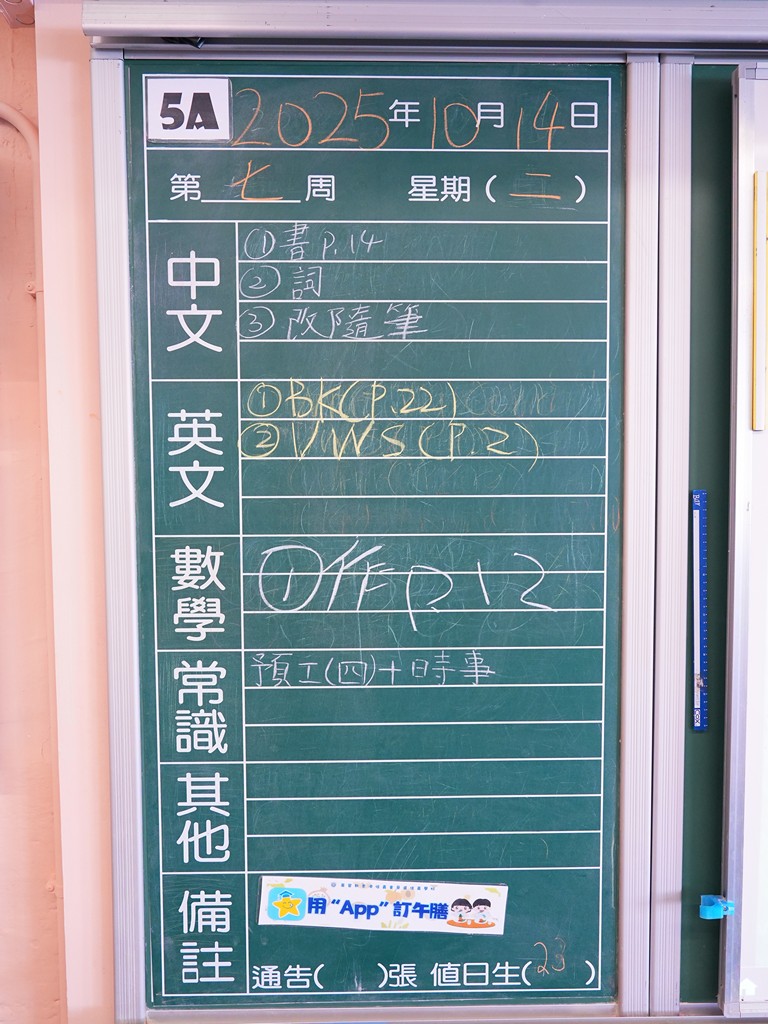 5A 2025年10月14日
第七周 星期(二)
中文
①書P.14
②詞
③改隨筆
英文
①BK(P.22)
②VWS(P.2)
數學
①作P.12
常識
預工(四)+時事
其他
備註
用“App”訂午膳
通告( )張 值日生(23)